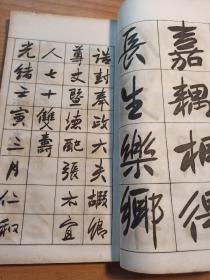 嘉耦相得
長生樂鄉
誥封奉政大夫嘏
尊丈暨德配張太宜
人七十雙壽
光緒壬寅三月仁和